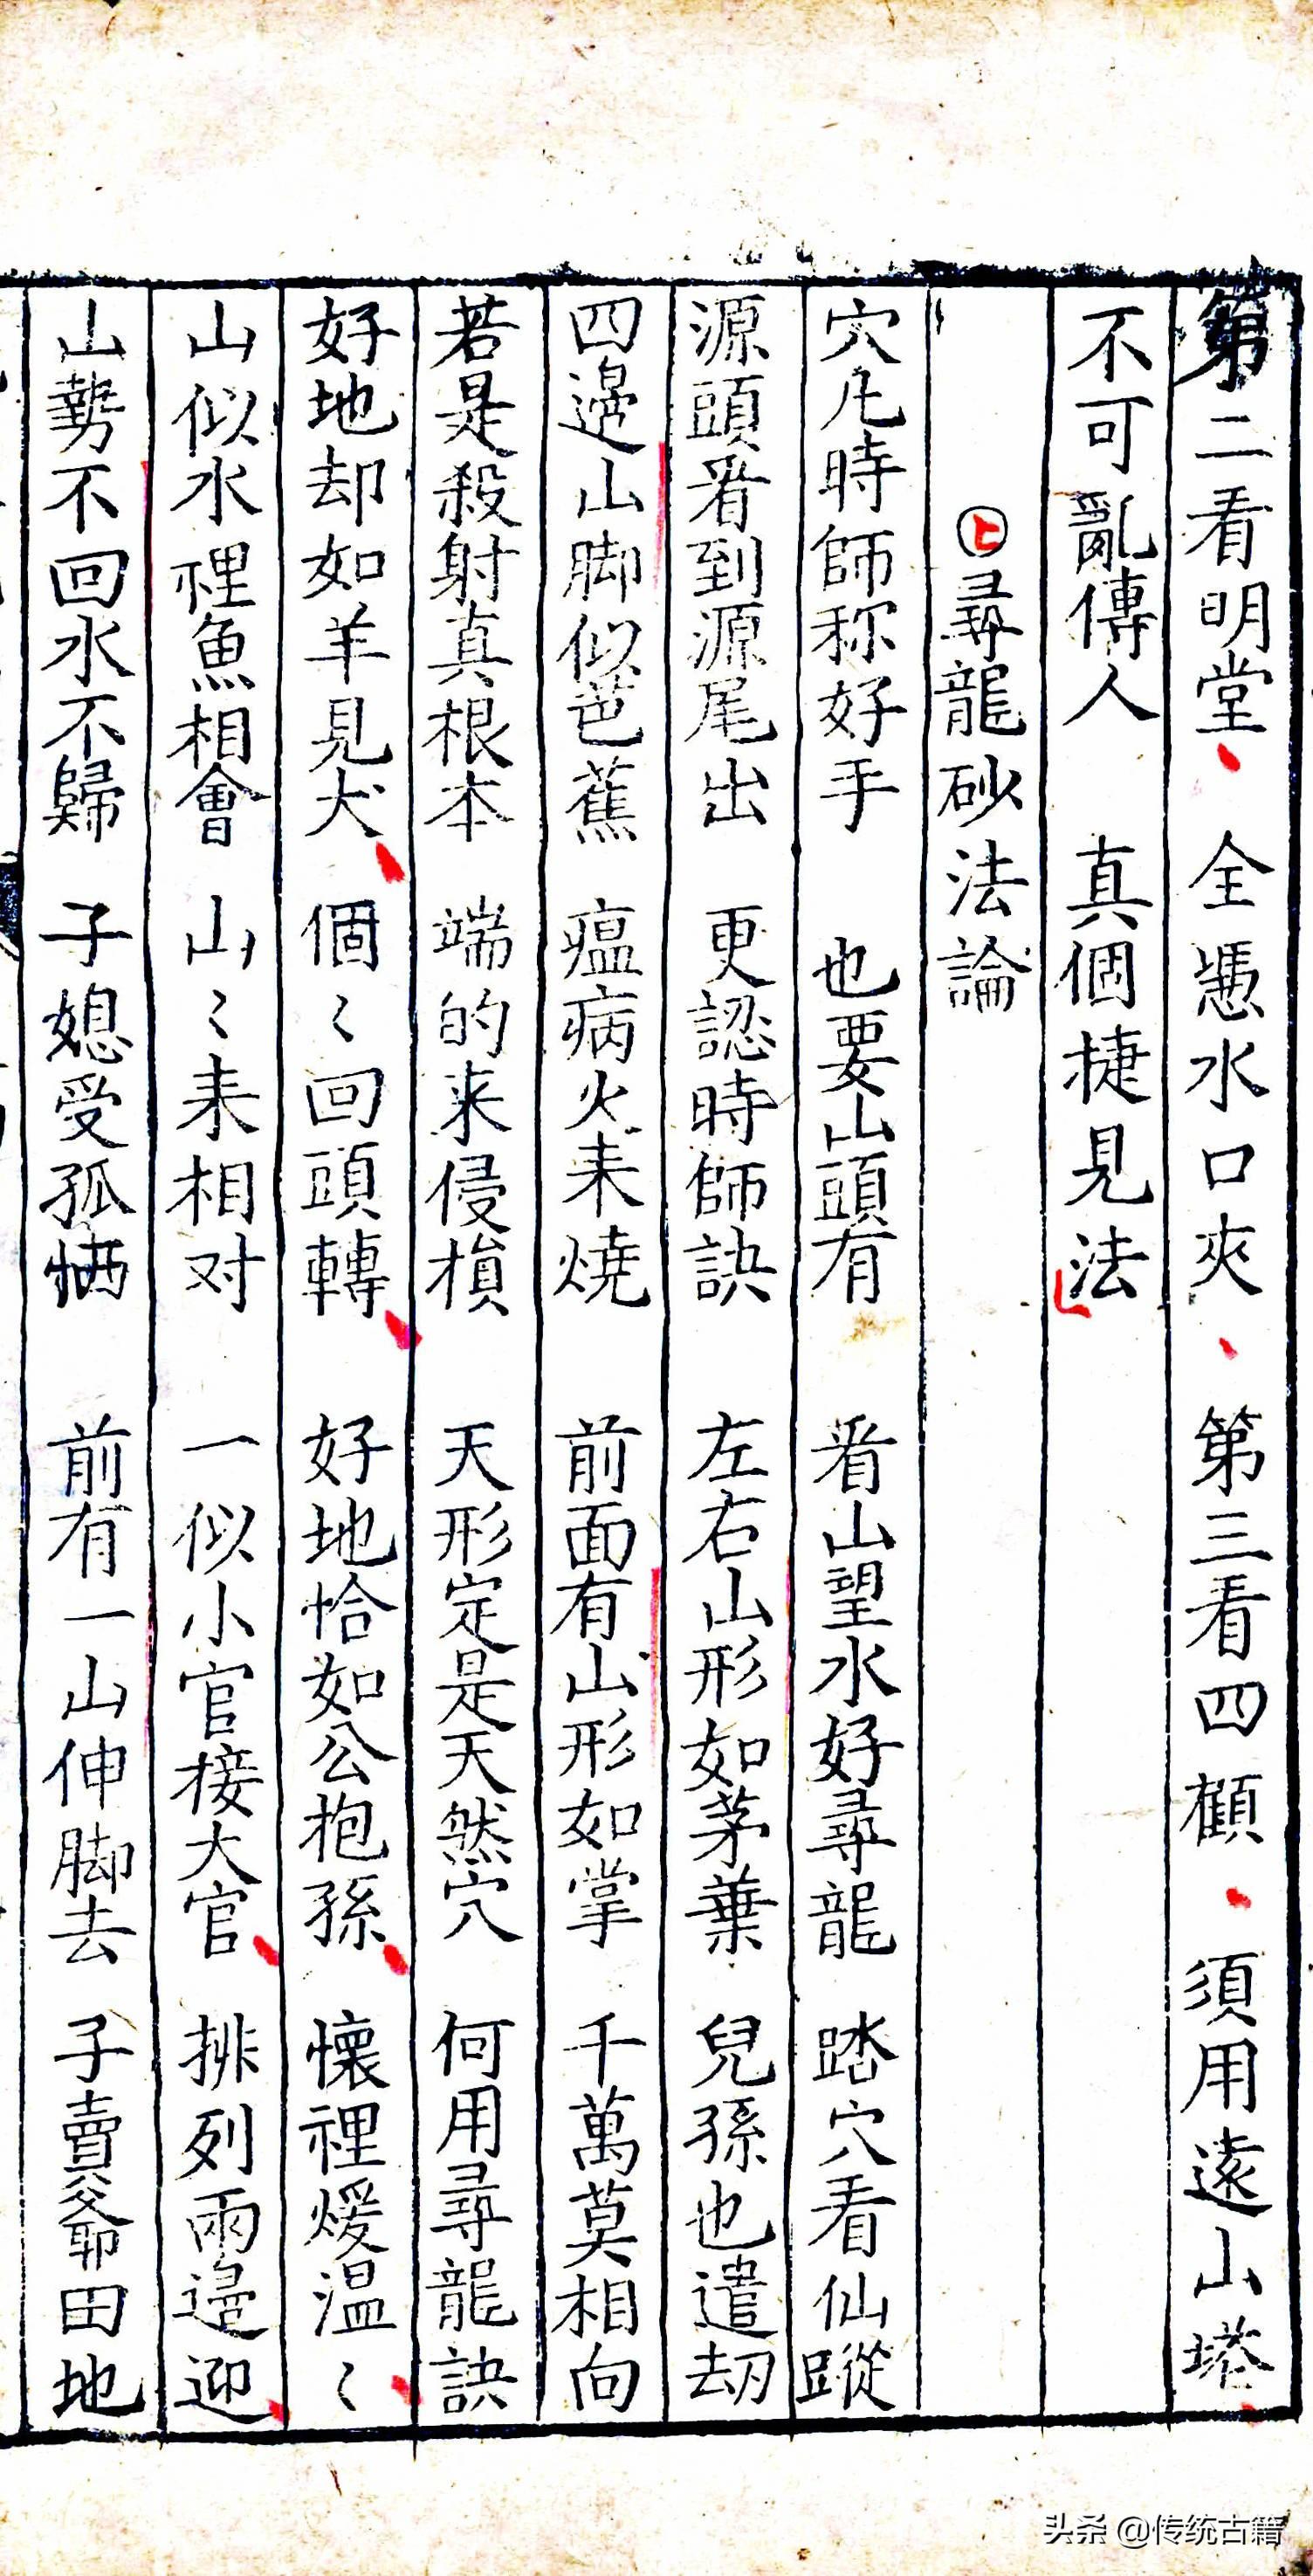 第二看明堂 全憑水口夾 第三看四顧 須用遠山塔
不可亂傳人 真個捷見法
尋龍砂法論
穴凢時師称好手 也要山頭有 㸔山望水好尋龍 踏穴看仙蹤
源頭㸔到源尾出 更認時師訣 左右山形如茅葉 兒孫也遣刼
四邉山脚似芭蕉 瘟病火耒燒 前面有山形如掌 千萬莫相向
若是殺射真根本 端的来侵損 天形定是天然穴 何用尋龍訣
好地却如羊見犬 個〻回頭轉 好地恰如公抱孫 懷裡煖溫〻
山似水裡魚相會 山〻耒相对 一似小官接大官 排列兩邉迎
山勢不回水不歸 子媳受孤恓 前有一山伸脚去 子賣爺田地
头条 @传统古籍